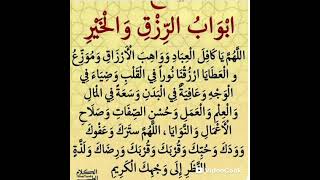 ابْوَابُ الرِّزْقِ وَالْخَيْرِ
اللَّهُمَّ يَا كَافِلَ الْعِبَادِ وَوَاهِبَ الْأَرْزَاقِ وَمُوَزِّعُ
الْعَطَايَا ارْزُقْنَا نُوراً فِي الْقَلْبِ وَضِيَاءً فِي
الْوَجْهِ وَعَافِيَةً فِي الْبَدَنِ وَسَعَةً فِي الْمَالِ
وَالْعِلْمِ وَالْعَمَلِ وَحُسْنَ الصِّفَاتِ وَصَلَاحِ
الْأَعْمَالِ وَالنَّوَايَا ، اللَّهُمَّ سِتْرَكَ وَعَفْوَكَ
وَوُدَّكَ وَحُبَّكَ وَقُرْبَكَ وَقُرْبَكَ وَرِضَاكَ وَلَذَّةٍ
النَّظَرِ إِلَى وَجْهِكَ الْكَرِيمِ
VideoCook